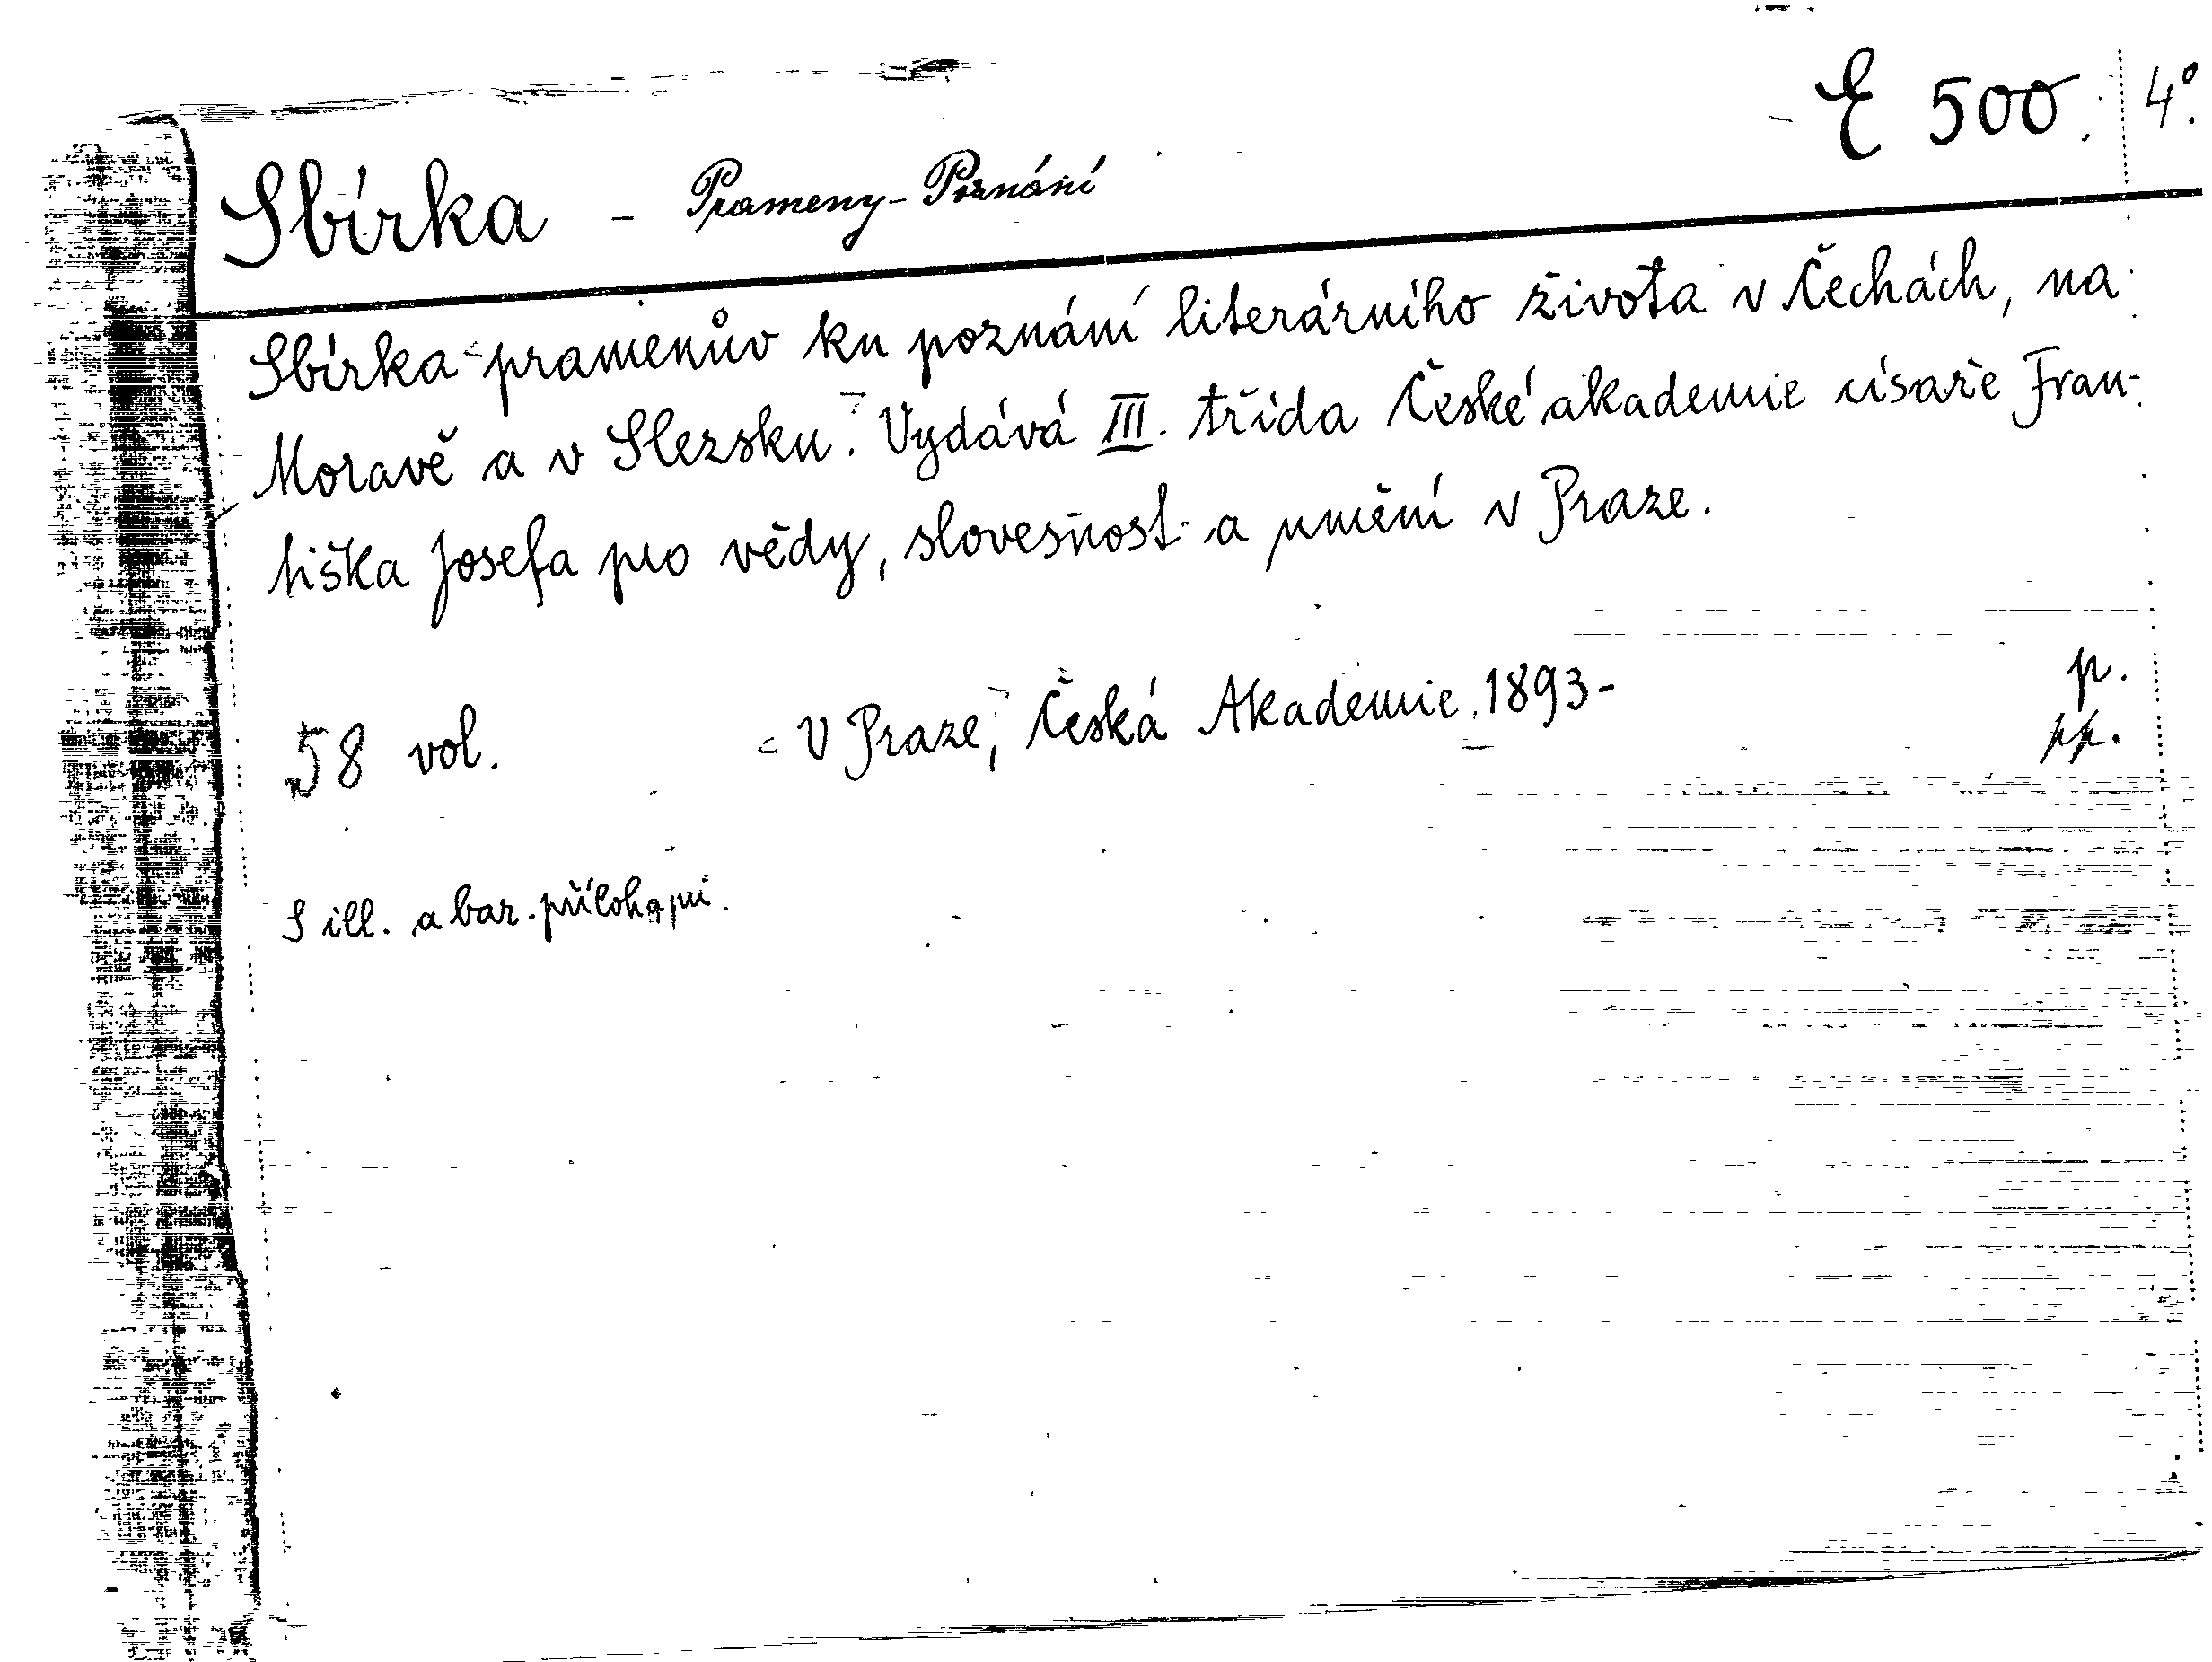 E 500. 4°.
Sbírka - Prameny - Poznání
Sbírka pramenův ku poznání literárního života v Čechách, na
Moravě a v Slezsku. Vydává III. třída České akademie císaře Fran-
tiška Josefa pro vědy, slovesnost a umění v Praze.
p.
58 vol. V Praze, Česká Akademie. 1893-
pp.
S ill. a bar. přílohami.